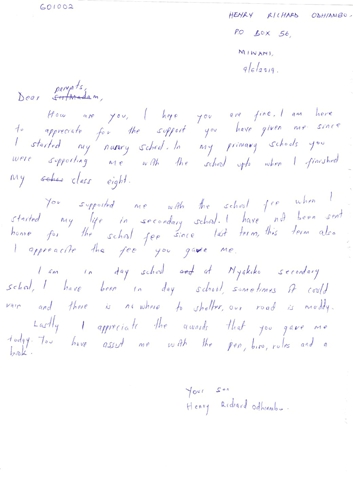 601002
HENRY RICHARD ODHIAMBO.
PO BOX 50,
MIWANI.
9/6/2019.
parents,
Dear
How are you, I hope you are fine. I am here
to appreciate for the support you have given me since
I started my nursery school. In my primary schools you
were supporting me with the school upto when I finished
my class eight.
You supported me with the school fee when I
started my life in secondary school. I have not been sent
home for the school fee since last term, this term also
I appreacite the fee you gave me
I am in day school and at Nyakoko secondary
school, I have been in day school, sometimes it could
rain and there is no where to shelter, our road is muddy.
Lastly I appreciate the awards that you gave me
today. You have assist me with the pen, biro, rules and a
book.
Your Son
Henry Richard Odhiambo.